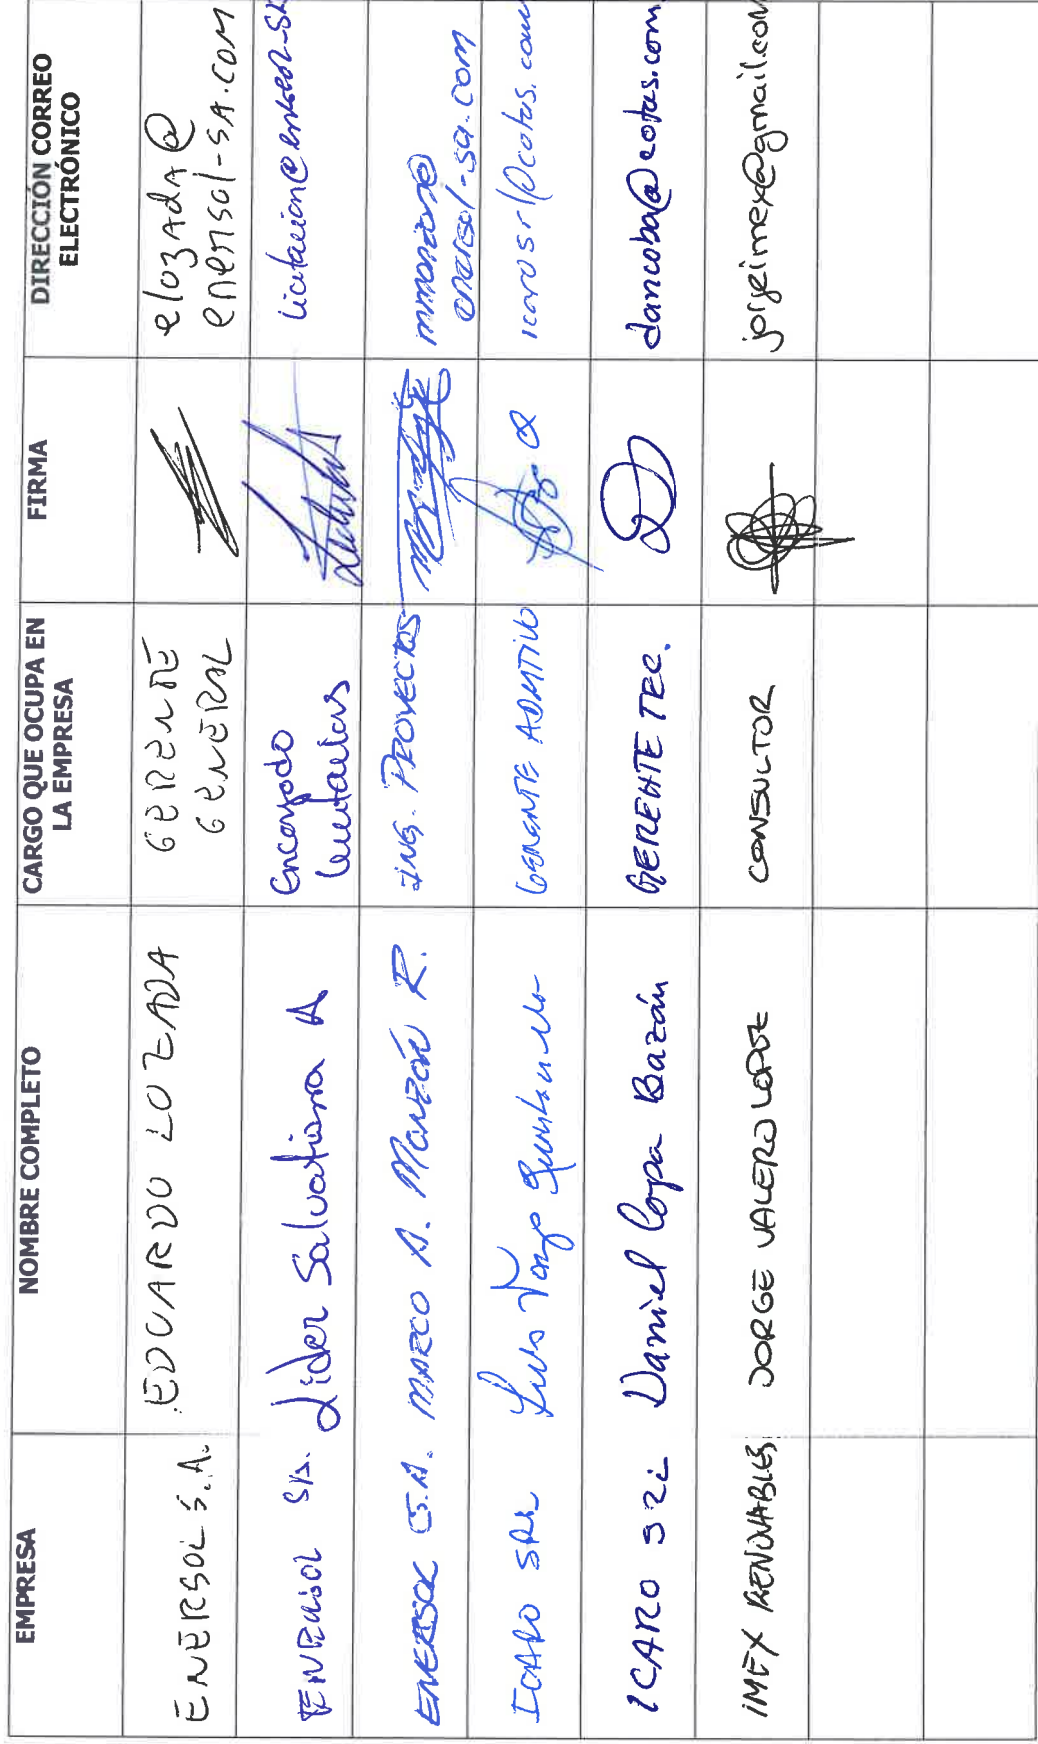 EMPRESA
NOMBRE COMPLETO
CARGO QUE OCUPA EN
LA EMPRESA
FIRMA
DIRECCIÓN CORREO
ELECTRÓNICO
ENERSOL S.A.
EDUARDO LOZADA
GERENTE
GENERAL
elozada@
enersol-SA.COM
ENERSOL S.A.
Lider Salvatierra A
Encargado
licitacion@enersol-SA
ENERSOL S.A.
MARCO A. MONZÓN R.
ING. PROYECTOS
mmonzon@
enersol-sa.com
ICARO SRL
Luis Vargas
GERENTE ADMTIVO
icarosrl@cotas.com
ICARO SRL
Daniel Copa Bazán
GERENTE TEC.
dancoba@cotas.com
IMEX RENOVABLES
JORGE VALERO LOPEZ
CONSULTOR
jorgeimex@gmail.com